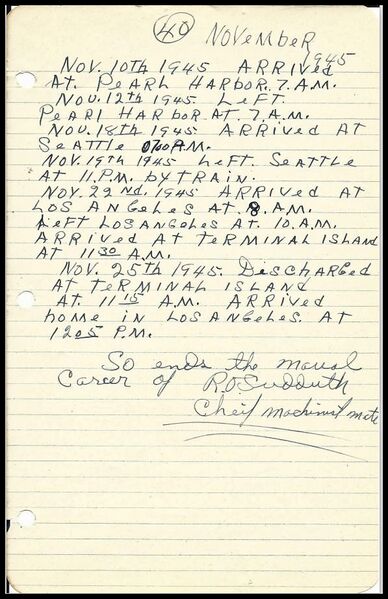 40
NOVEMBER
1945
NOV. 10TH 1945 ARRIVED
AT PEARL HARBOR. 7. A.M.
NOV. 12TH 1945 LEFT
PEARL HARBOR AT 7. A.M.
NOV. 18TH 1945 ARRIVED AT
SEATTLE 0700 A.M.
NOV. 19TH 1945 LEFT SEATTLE
AT 11. P.M. BY TRAIN.
NOV. 22ND. 1945 ARRIVED AT
LOS ANGELES AT 8. A.M.
LEFT LOS ANGELES AT 10. A.M.
ARRIVED AT TERMINAL ISLAND
AT 11 30 A.M.
NOV. 25TH 1945. DISCHARGED
AT TERMINAL ISLAND
AT. 11 15 A.M. ARRIVED
HOME IN LOS ANGELES. AT
12 05 P.M.
So ends the
Career of R.O. Sudduth
Cheif machinist mate